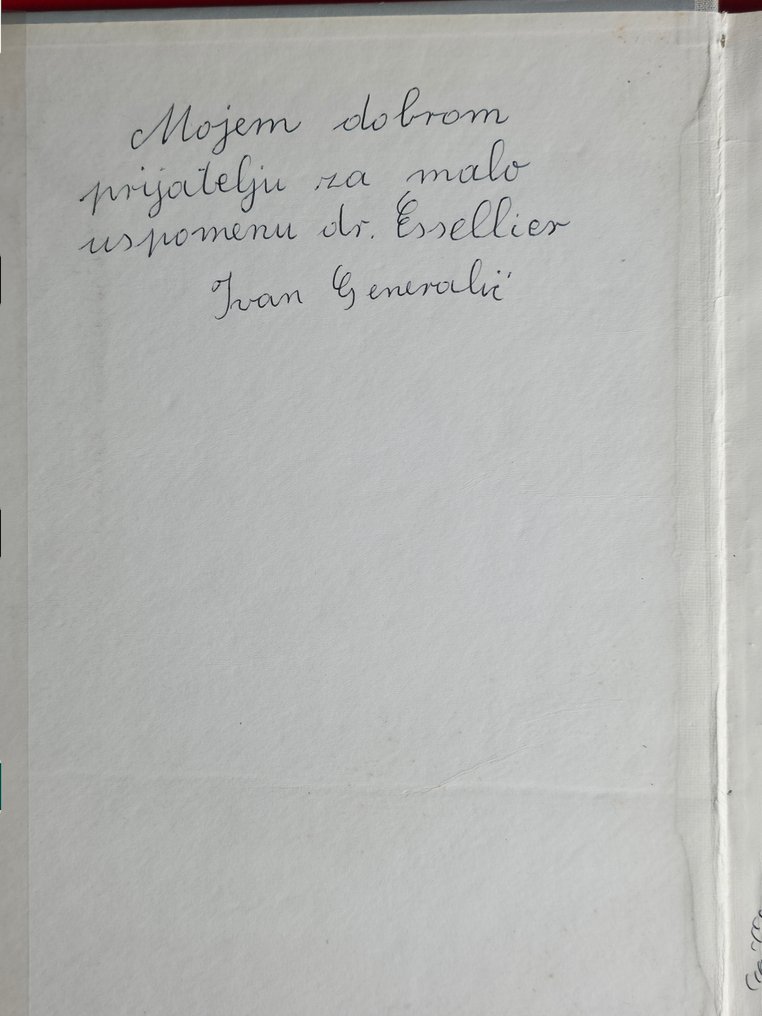 Mojem dobrom
prijatelju za malo
uspomenu dr. Essellier
Ivan Generalić